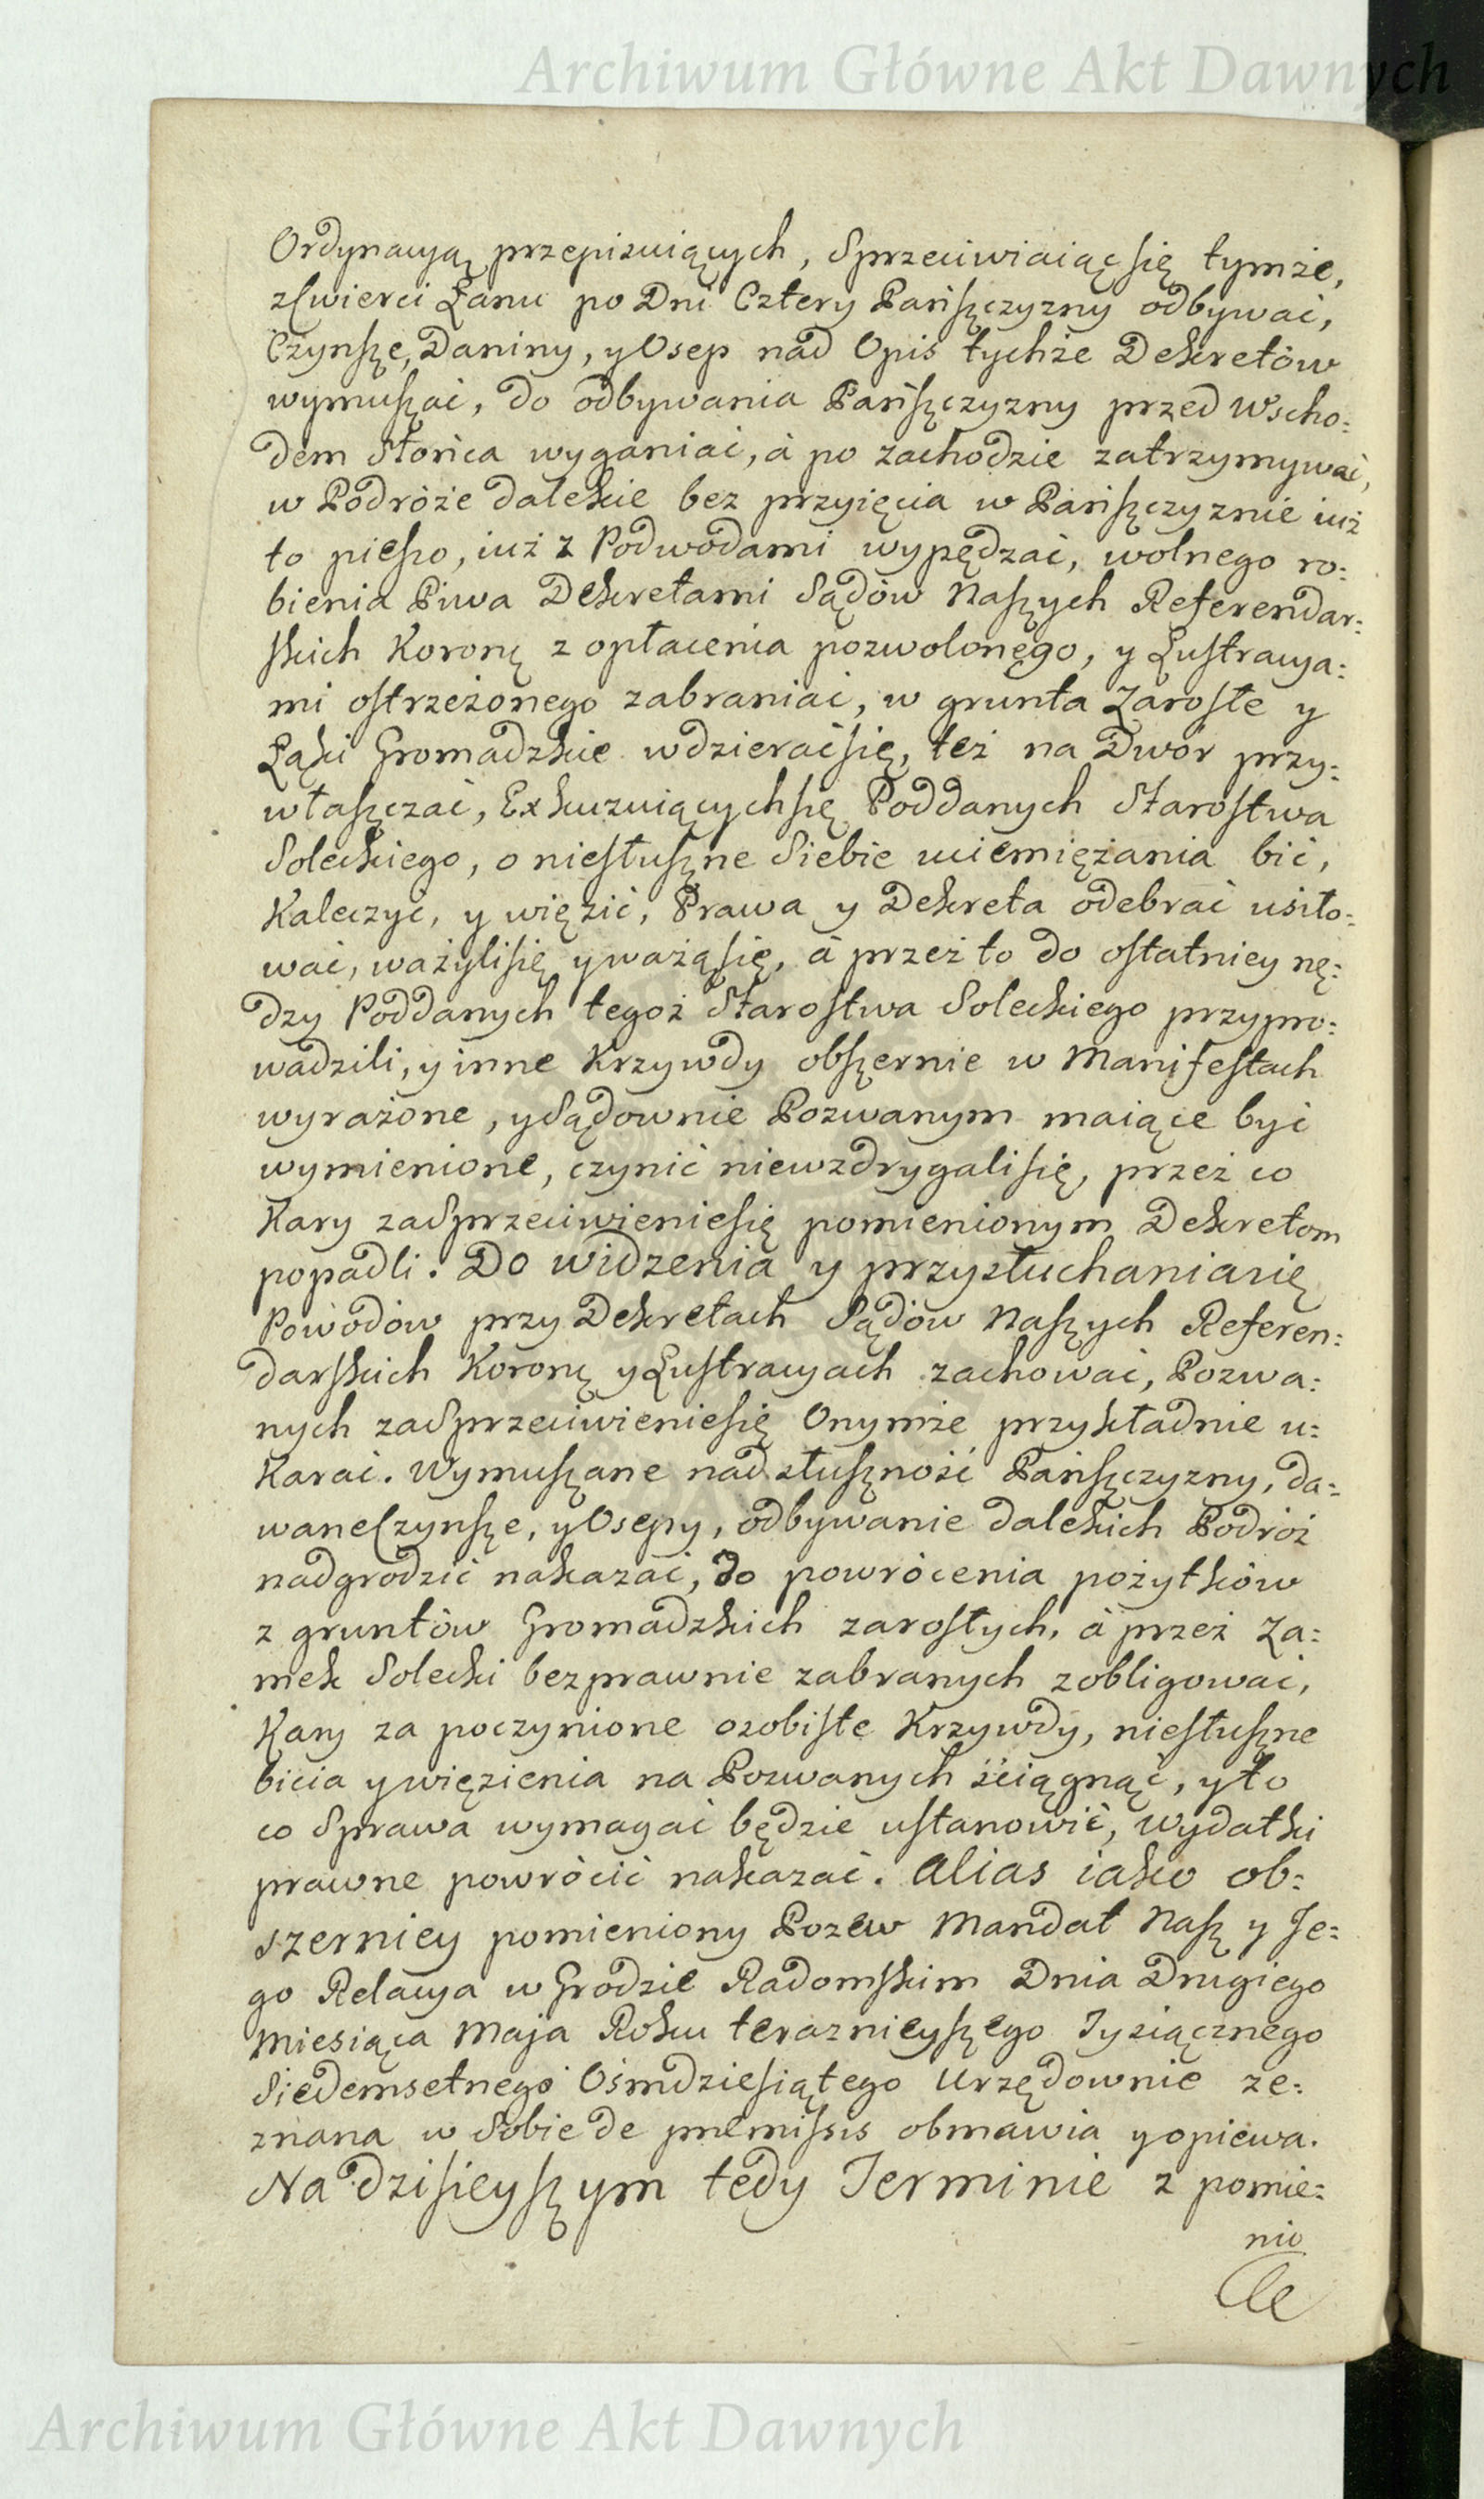 Archiwum Główne Akt Dawnych
Ordynacyą przepisuiących, Sprzeciwiaiąc się tymże,
z Cwierci Łanu po Dni Cztery Pańszczyzny odbywać,
Czynsze, Daniny, y Osep nad Opis tychże Dekretów
wymuszać, do odbywania Pańszczyzny przed Wscho=
dem Słońca wyganiać, á po zachodzie zatrzymywać,
w Podróże dalekie bez przyięcia w Pańszczyznie iuż
to pieszo, iuż z Podwodami wypędzać, wolnego ro=
bienia Piwa Dekretami Sądów Naszych Referendar=
skich Koronę z opłacenia pozwolonego, y Lustracya=
mi ostrzeżonego zabraniać, w grunta Zarosłe y
Łąki Gromadzkie wdzierać się, też na Dwór przy=
właszczać, Exkuzuiących się Poddanych Starostwa
Soleckiego, o niesłuszne Siebie uciemiężania bić,
Kaleczyć, y więzić, Prawa y Dekreta odebrać usiło=
wać, ważyli się y ważą się, á przez to do ostatniey nę=
dzy Poddanych tegoż Starostwa Soleckiego przypro=
wadzili, y inne Krzywdy obszernie w Manifestach
wyrażone, y Sądownie Pozwanym maiące być
wymienione, czynić niewzdrygali się, przez co
Kary za Sprzeciwienie się pomienionym Dekretom
popadli. Do widzenia y przysłuchania się
Powodów przy Dekretach Sądów Naszych Referen=
darskich Koronę y Lustracyach zachować, Pozwa=
nych za Sprzeciwienie się Onymże przykładnie u=
Karać. Wymuszane nad słuszność Pańszczyzny, da=
wane Czynsze, y Osepy, odbywanie dalekich Podróż
nadgrodzić nakazać, do powrócenia pożytków
z gruntów Gromadzkich zarosłych, á przez Za=
mek Solecki bezprawnie zabranych zobligować,
Kary za poczynione osobiste Krzywdy, niesłuszne
bicia y więzienia na Pozwanych ściągnąć, y to
co Sprawa wymagać będzie ustanowić, Wydatki
prawne powrócić nakazać. Alias iako ob=
szerniey pomieniony Pozew Mandat Nasz y Je=
go Relacya w Grodzie Radomskim Dnia Drugiego
Miesiąca Maja Roku terazniejszego Tysiącznego
Siedemsetnego Osmdziesiątego Urzędownie ze=
znana w Sobie de præmissis obmawia y opiewa.
Na dzisieyszym tedy Terminie z pomie=
nio
Archiwum Główne Akt Dawnych